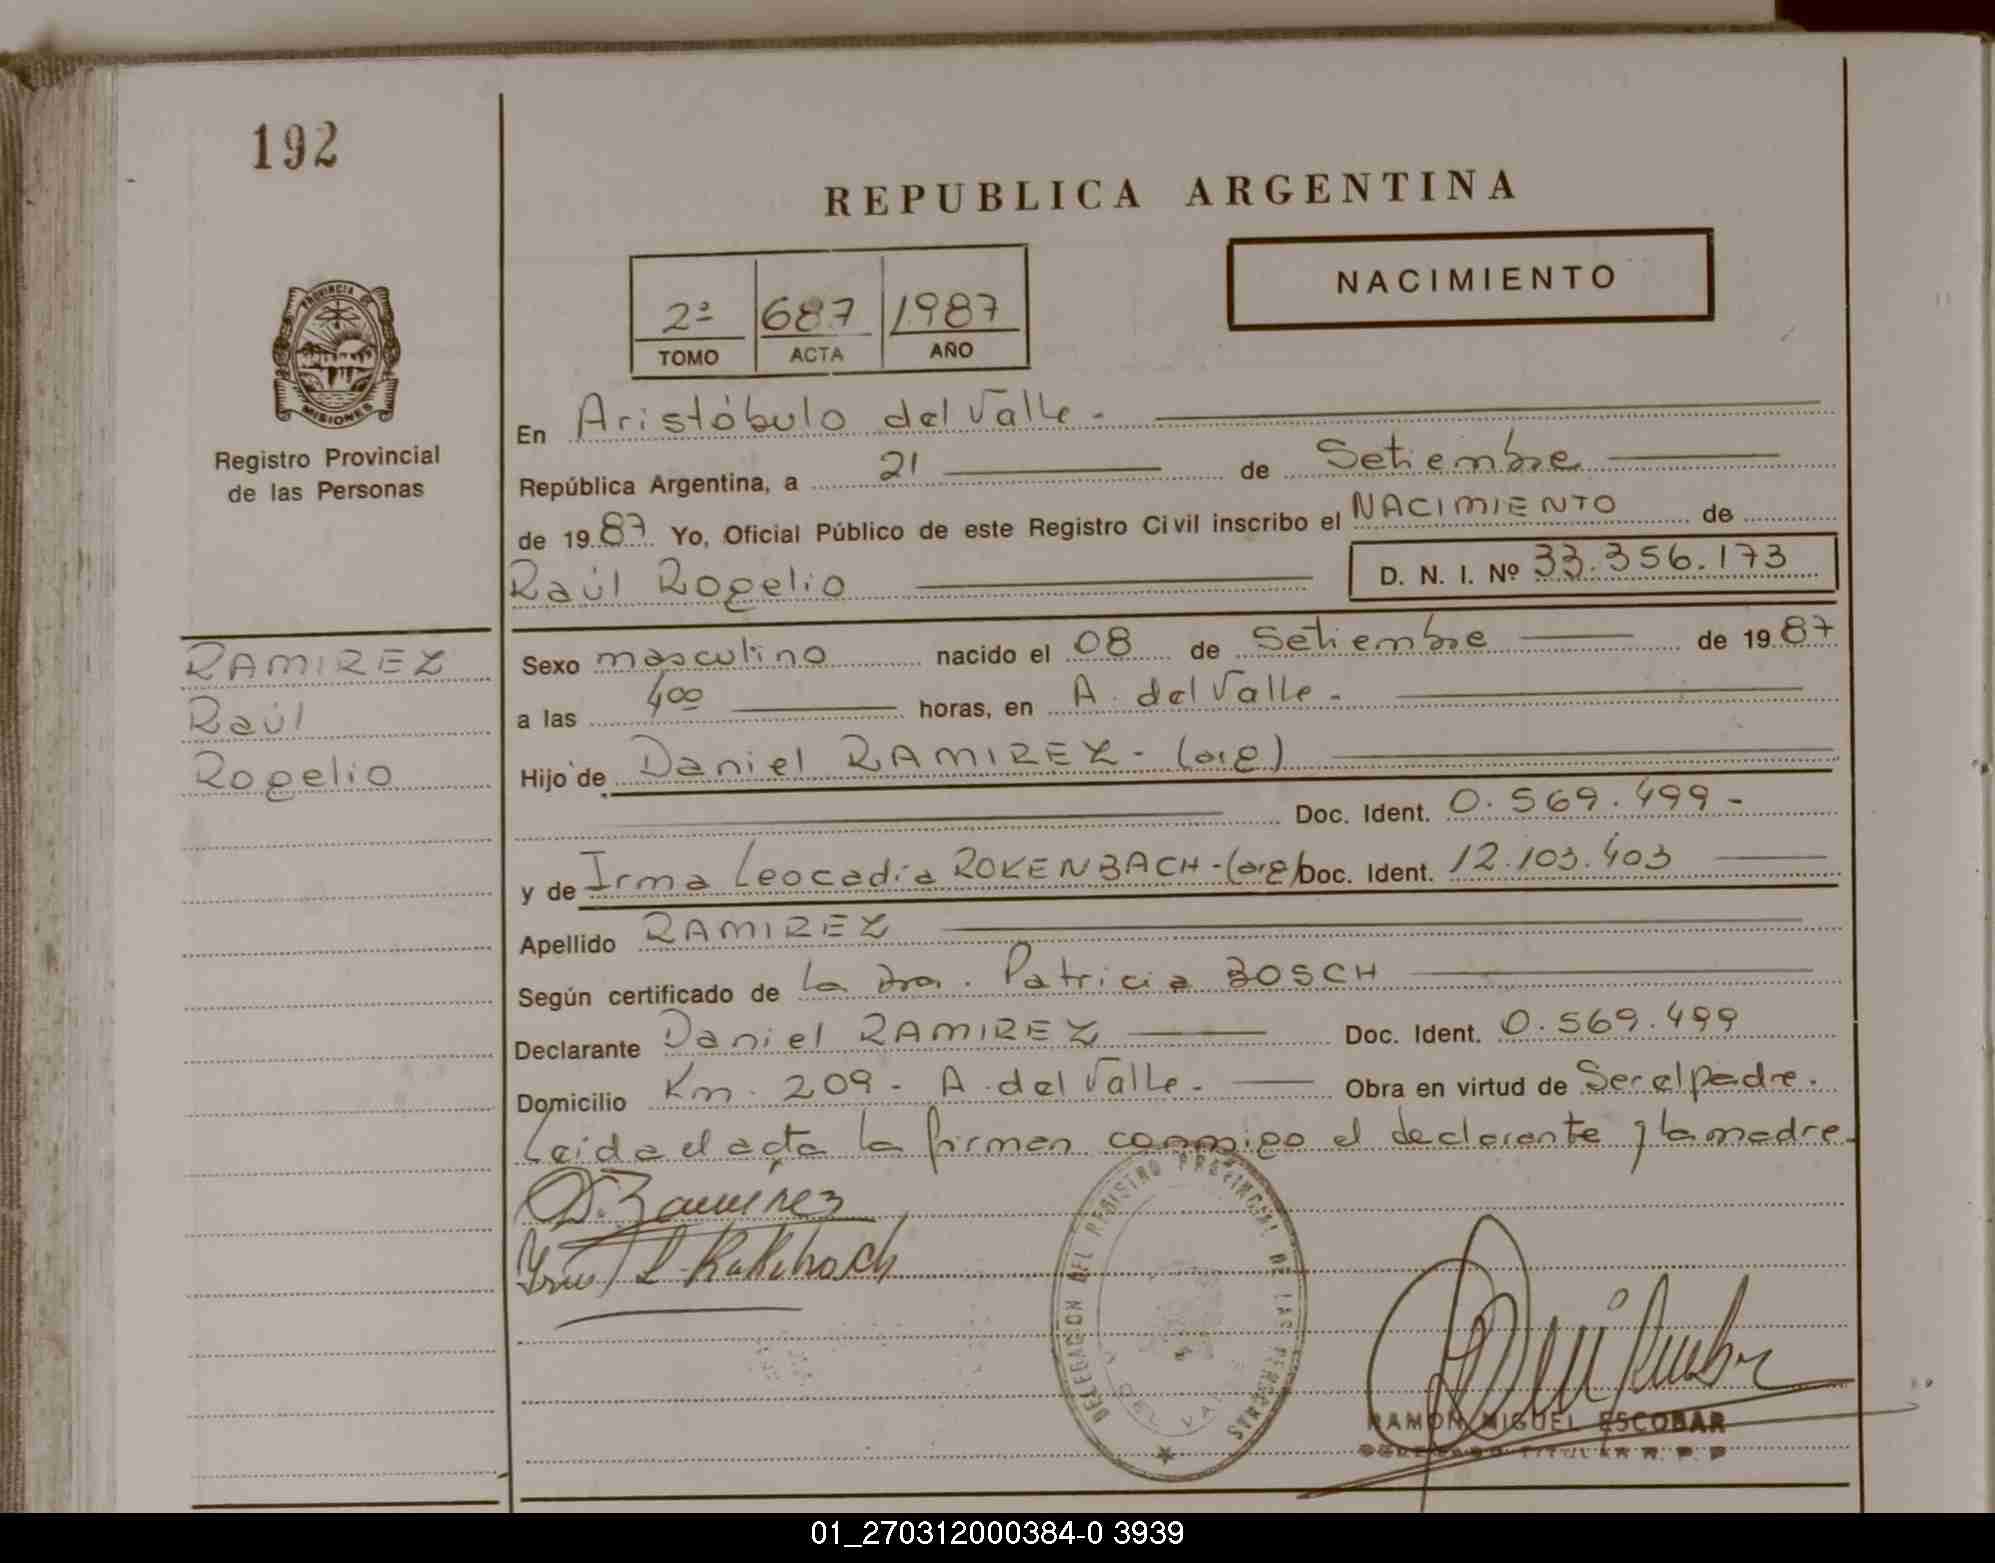 192
REPUBLICA ARGENTINA
NACIMIENTO
2ª 687 1987
TOMO ACTA AÑO
PROVINCIA DE
MISIONES
Registro Provincial
de las Personas
En Aristóbulo del Valle.
República Argentina, a 21 de Setiembre
de 1987 Yo, Oficial Público de este Registro Civil inscribo el NACIMIENTO de
Raúl Rogelio D. N. I. Nº 33.356.173
RAMIREZ
Raúl
Rogelio
Sexo masculino nacido el 08 de Setiembre de 1987
a las 4⁰⁰ horas, en A. del Valle.
Hijo de Daniel RAMIREZ - (arg)
Doc. Ident. 0.569.499-
y de Irma Leocadia ROKENBACH-(arg) Doc. Ident. 12.103.403
Apellido RAMIREZ
Según certificado de la Dra. Patricia BOSCH
Declarante Daniel RAMIREZ Doc. Ident. 0.569.499
Domicilio Km. 209 - A. del Valle. Obra en virtud de Ser el padre.
Leida el acta la firman conmigo el declarante y la madre.
D. Ramirez
DELEGACION DEL REGISTRO PROVINCIAL DE LAS PERSONAS
DEL VALLE
RAMON MIGUEL ESCOBAR
DELEGADO TITULAR R. P. P
01_270312000384-0 3939